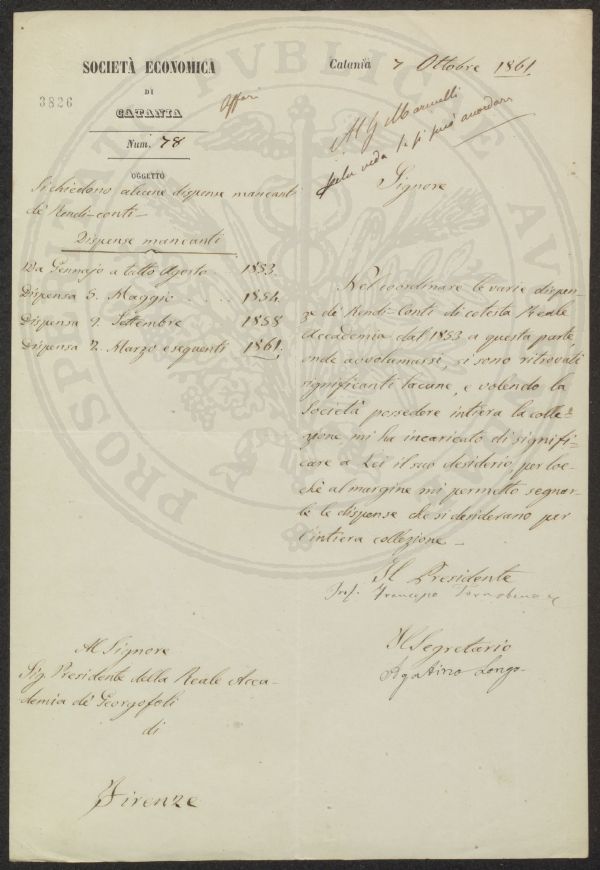 SOCIETÀ ECONOMICA
DI
CATANIA
3826
Num. 78
Affari
Catania 7 Ottobre 1861.
Al Sg Marucelli
veda se si può accordare
OGGETTO
Si chiedono alcune dispense mancanti
de' Rendi-conti
Dispense mancanti
Da Gennajo a tutto Agosto .. 1853.
Dispensa 5. Maggio .... 1854.
Dispensa 9. Settembre 1858
Dispensa 2. Marzo e seguenti 1861.
Signore
Nel coordinare le varie dispen-
ze de' Rendi-Conti di cotesta Reale
Accademia dal 1853 a questa parte,
onde avvolumarsi, si sono ritrovati
significanti lacune, e volendo la
Società possedere intiera la colle-
zione mi ha incaricato di signifi-
care a Lei il suo desiderio, per loc-
chè al margine mi permetto segnar-
le le dispense che si desiderano per
l'intiera collezione
Il Presidente
Prof. Francesco Tornabene
Il Segretario
Agatino Longo
Al Signore
Sig. Presidente della Reale Acca-
demia de' Georgofoli
di
Firenze
PVBLICAE
PROSPERITATI
AV